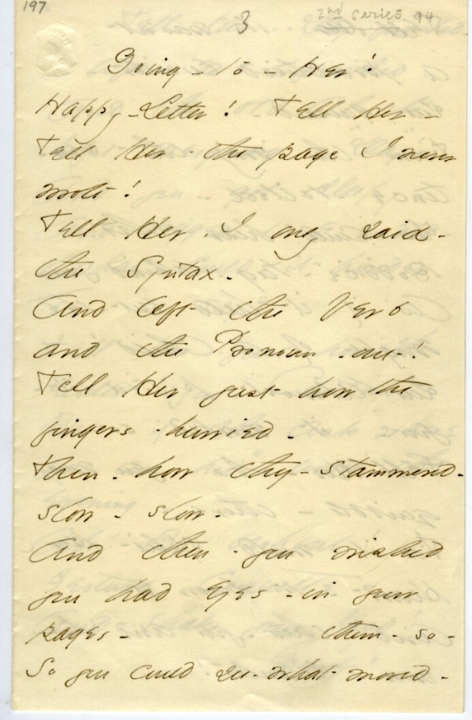 197
3
2nd series 94
Going - to - Her!
Happy - Letter! Tell Her -
Tell Her - the page I never
wrote!
Tell Her, I only said -
the Syntax -
And left the Verb
and the Pronoun - out!
Tell Her just how the
fingers - hurried -
Then - how they - stammered -
slow - slow -
And then - you wished
you had Eyes - in your
pages - them - so -
So you could see - what moved -